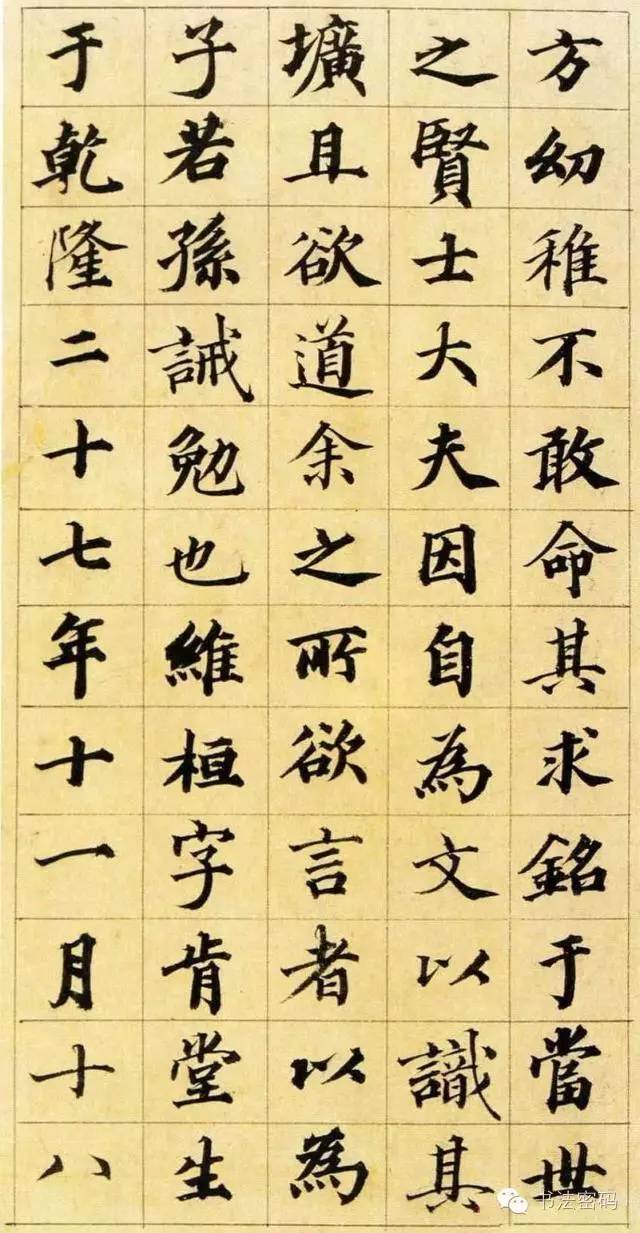 方幼稚不敢命其求銘于當世
之賢士大夫因自為文以識其
壙且欲道余之所欲言者以為
子若孫誡勉也維桓字肯堂生
于乾隆二十七年十一月十八
书法密码